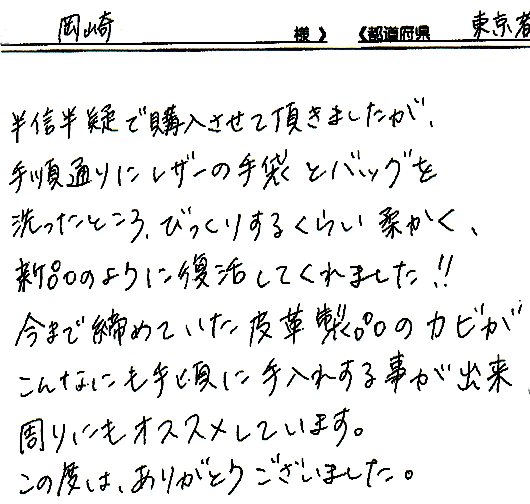 岡崎 様》 《都道府県 東京都
半信半疑で購入させて頂きましたが、
手順通りにレザーの手袋とバッグを
洗ったところ、びっくりするくらい柔かく、
新品のように復活してくれました!!
今まで締めていた皮革製品のカビが
こんなにも手頃に手入れする事が出来
周りにもオススメしています。
この度は、ありがとうございました。